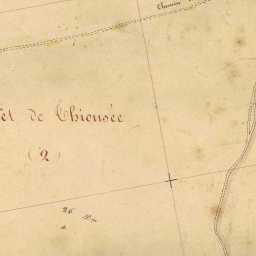 Chemin
et de Chiousée
(2)